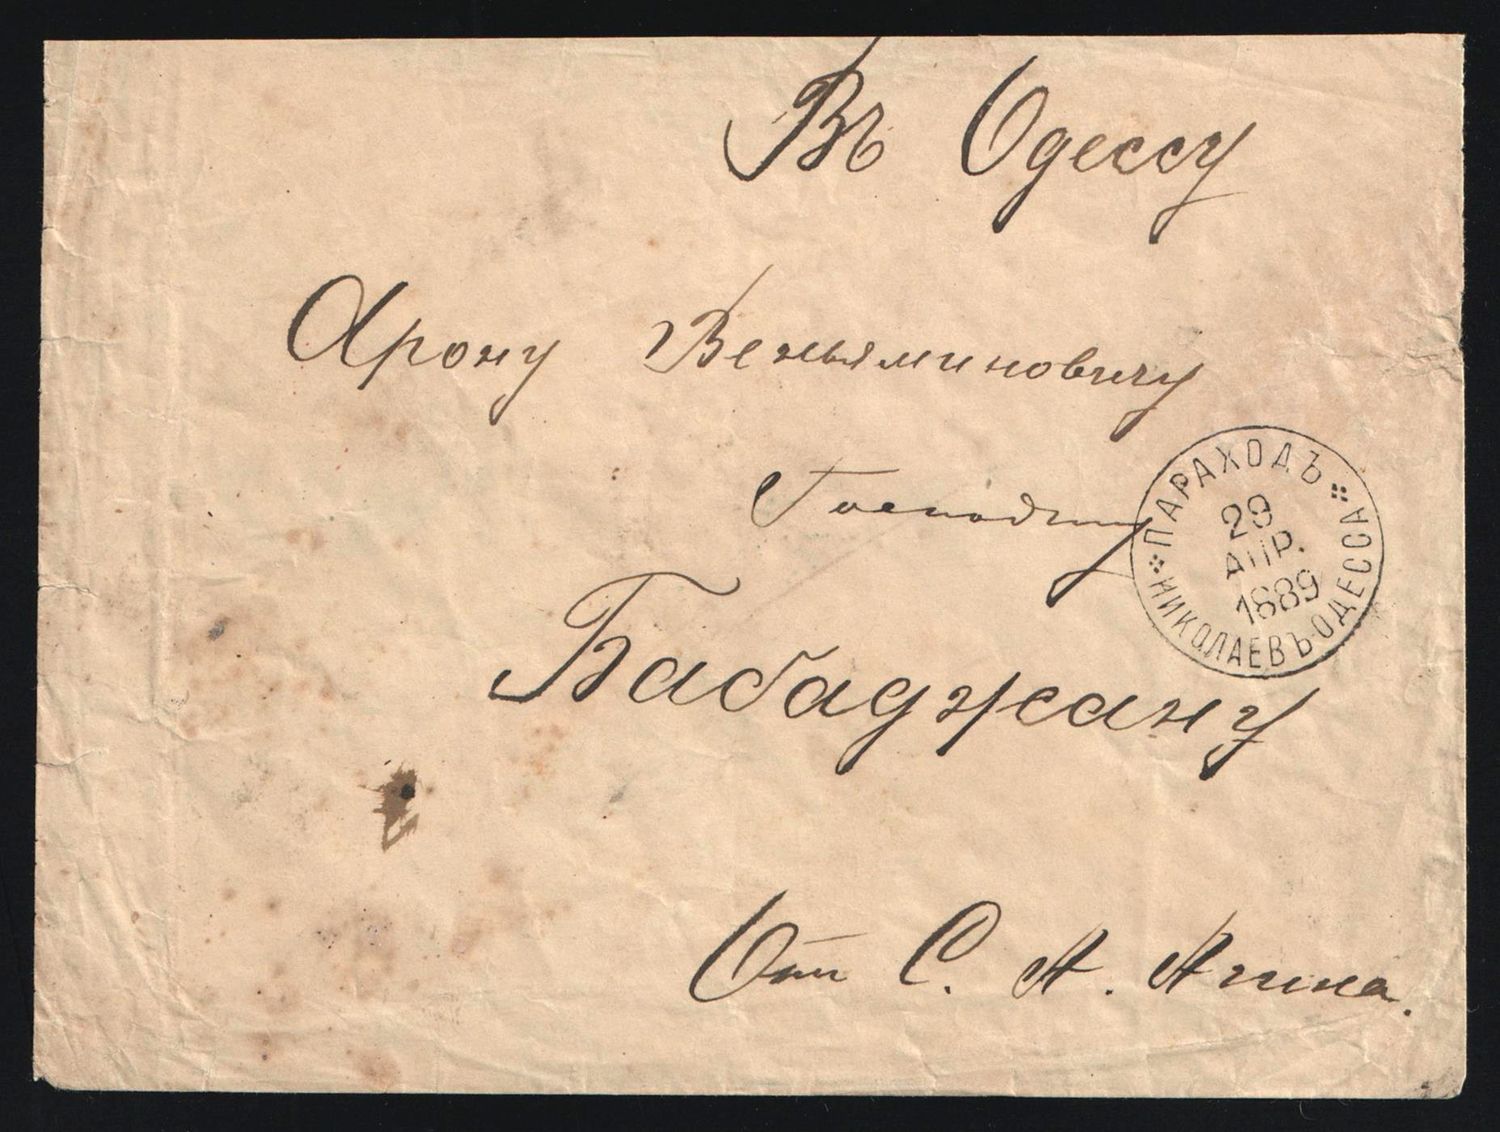 Въ Одессу
Арону Веньяминовичу
Господину
Бабаджану
ПАРАХОДЪ
29
АПР.
1889
НИКОЛАЕВЪ-ОДЕССА
От С. А.